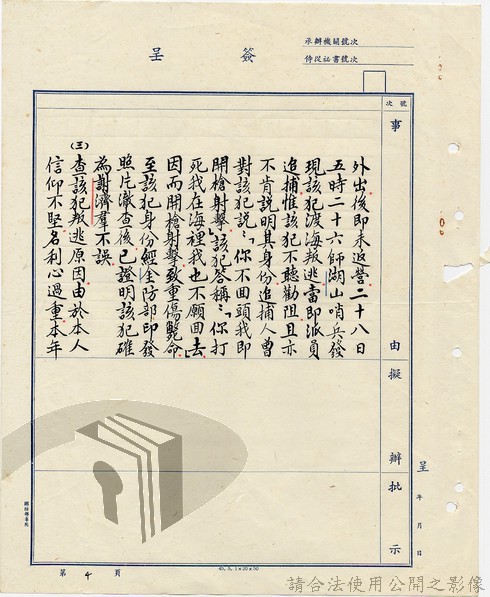 簽呈
承辦機關號次
侍從祕書號次
號次
事由
擬辦
批示
外出後即未返營二十八日
五時二十六師湖山哨兵發
現該犯渡海叛逃當即派員
追捕惟該犯不聽勸阻且亦
不肯說明其身份追捕人曾
對該犯說:「你不回頭我即
開槍射擊」該犯答稱:「你打
死我在海裡我也不願回去」
因而開槍射擊致重傷斃命
至該犯身份經金防部印發
照片澈查後已證明該犯確
為謝濟羣不誤
(三)查該犯叛逃原因由於本人
信仰不堅名利心過重本年
呈 年 月 日
第 4 頁
請合法使用公開之影像